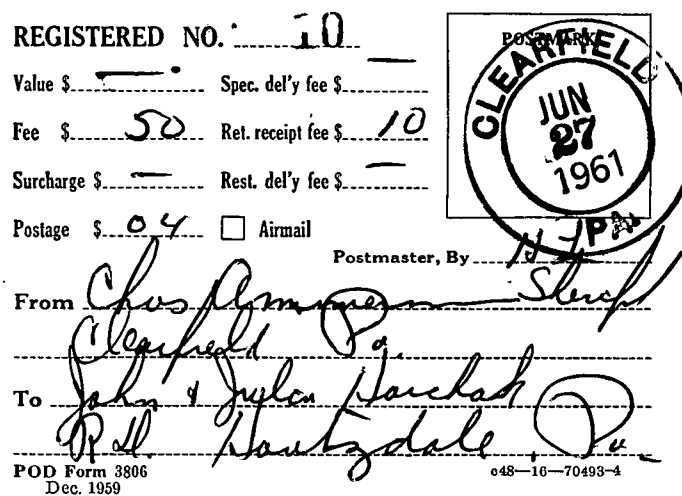 REGISTERED NO. 10
POSTMARK
Value $ — Spec. del'y fee $ —
Fee $ 50 Ret. receipt fee $ 10
Surcharge $ — Rest. del'y fee $ —
Postage $ 04 Airmail
CLEARFIELD
JUN
27
1961
PA.
Postmaster, By
From Chas Ammerman Sheriff
Clearfield Pa.
To John & Julia
R.D. Houtzdale, Pa.
POD Form 3806
Dec. 1959
c48—16—70493-4